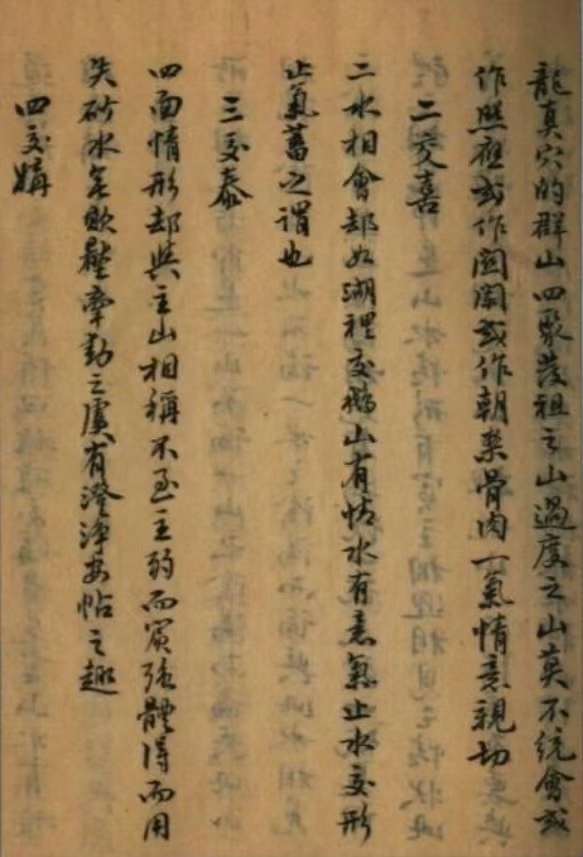 龍真穴的群山四聚發祖之山過度之山莫不統會或
作照應或作関闌或作朝案骨肉一氣情意親切
二交喜
二水相會却如湖裡交鴛山有情水有意氣止水交形
止氣蓄之謂也
三交泰
四面情形却與主山相稱不至主弱而賓強體得而用
失砂水無欺壓牽動之虞有澄淨安帖之趣
四交媾